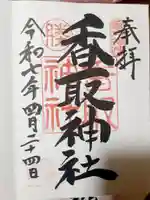 奉拝
香取神社
令和七年四月二十四日